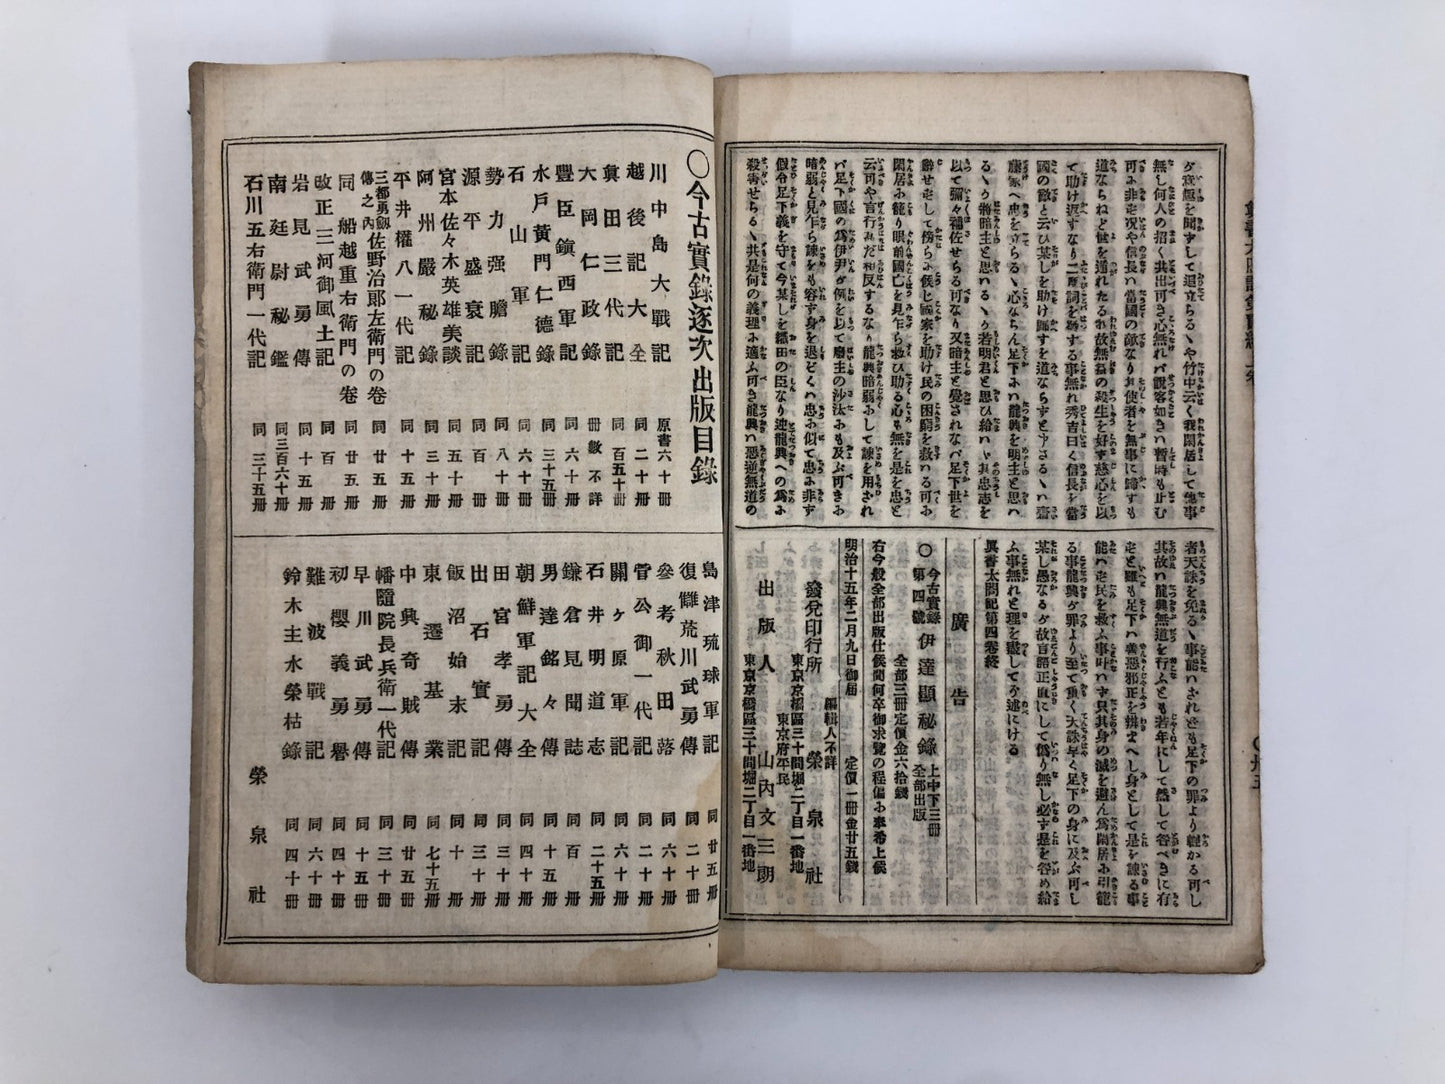 無し何人の招く共出可き心無れバ觀客如きハ暫時も止む
可ふ非ず况や信長ハ當國の敵なり其使者を無事に歸すも
道ならねど世を遁れたる故無益の殺生を好ず慈心を以
て助け返すなり二度詞を動する事無れ秀吉曰く信長を當
國の敵と云ひ某しを助け歸すを道ならずと
藤家へ忠を立らるゝ心ならん足下ふハ龍興を明主と思ハ
るゝか將暗主と思ハるゝか若明君と思ひ給ハヾ其忠志を
以て彌々補佐せらる可なり又暗主と覺されなバ足下世を
辭せずして傍らふ侯じ國家を助け民の困窮を救ハる可ふ
閑居ふ籠り眼前國亡を見乍ら救ひ助る心も無を是を忠と
云可や言行みだれ相反するなり龍興暗弱ふして諫を用され
バ足下國の爲伊尹が例を以て廢主の沙汰ふも及ふ可きふ
暗弱と見乍ら諫をも容ず身を退ぞくハ忠ふ似て忠ふ非ず
假令足下義を守て今某しを織田の臣なり迚龍興への爲ふ
殺害せらるゝ共是何の義理ふ適ふ可き龍興ハ惡逆無道の
者天誅を免るゝ事能ハされども足下の罪より輕かる可し
其故ハ龍興無道を行ふとも若年にして然して咎べきに有
ずと雖も足下ハ善惡邪正を辨まへし身として是を諫る事
能ハず民を救ふ事叶ハず只其身の滅を避ん爲閑居ふ引籠
る事龍興が罪より至て重く天誅早く足下の身に及ふ可し
某し愚なるが故言語正直にして僞り無し必ず是を咎め給
ふ事無れと理を盡して述にける
異書太閤記第四卷終
廣告
○今古實錄第四號 伊達顯秘錄 上中下三冊全部出版
全部三冊定價金六拾錢
右今般全部出版仕候間何卒御求覽の程偏ふ奉希上候
明治十五年二月九日御屆 定價一冊金廿五錢
編輯人不詳
發兌印行所 榮泉社
東京京橋區三十間堀二丁目一番地
東京府平民
出版人 山内文三郎
東京京橋區三十間堀二丁目一番地
○今古實錄逐次出版目錄
川中島大戰記 原書六十冊
越後記大全 同二十冊
眞田三代記 同百五十冊
大岡仁政錄 冊數不詳
豐臣鎭西軍記 同六十冊
水戸黃門仁德錄 同三十五冊
石山軍記 同六十冊
勢力强膽錄 同八十冊
源平盛衰記 同百冊
宮本佐々木英雄美談 同五十冊
阿州嚴秘錄 同三十冊
平井權八一代記 同十五冊
三都勇劔傳之内 佐野治郎左衞門の卷 同廿五冊
同船越重右衛門の卷 同廿五冊
改正三河御風土記 同百冊
岩見武勇傳 同十五冊
南廷尉秘鑑 同三百六十冊
石川五右衛門一代記 同三十五冊
島津琉球軍記 同廿五冊
復讎荒川武勇傳 同二十冊
參考秋田蕗 同六十冊
菅公御一代記 同二十冊
關ヶ原軍記 同六十冊
石井明道志 同二十五冊
鎌倉見聞誌 同百冊
男達銘々傳 同十五冊
朝鮮軍記大全 同四十冊
田宮孝勇傳 同十冊
出石實記 同三十冊
飯沼始末記 同十冊
東遷基業 同七十五冊
中興奇賊傳 同廿五冊
幡隨院長兵衛一代記 同三十冊
早川武勇傳 同十五冊
初櫻義勇譽 同四十冊
難波戰記 同六十冊
鈴木主水榮枯錄 同四十冊
榮泉社